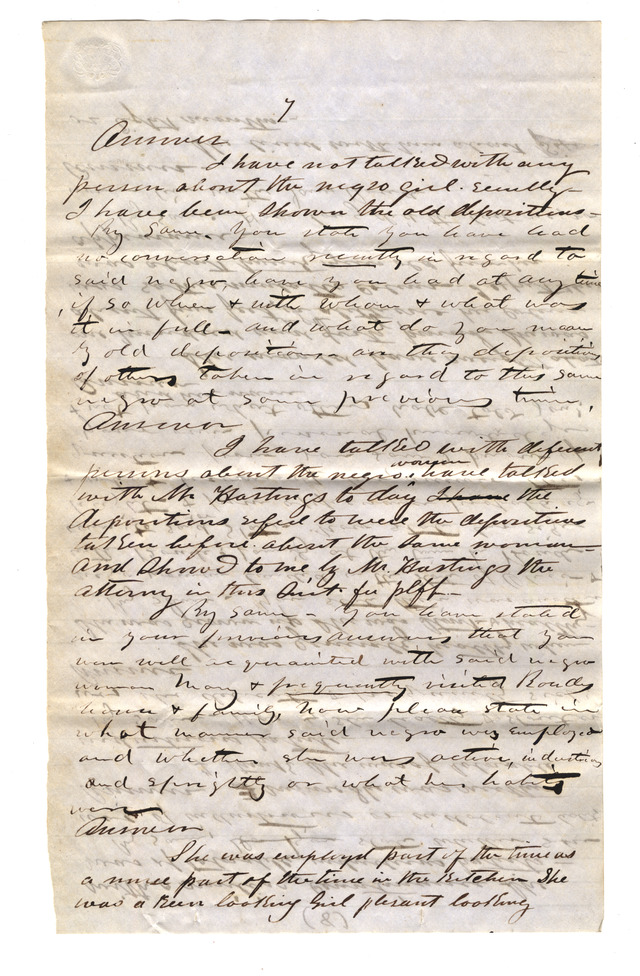 7
Answer
I have not talked with any
person about the negro girl recently
I have been shown the old depositions -
By same. You state you have had
no conversation recently in regard to
said negro have you had at any time
if so when & with whom & what was
it in full - and what do you mean
by old depositions - are they depositions
of others taken in regard to this same
negro at some previous time,
Answer
I have talked with diferent
persons about the negro woman have talked
with Mr Hastings to day I have the
depositions refred to were the depositions
taken before about the same woman -
and showed to me by Mr. Hastings the
attorny in this Suit for plff -
By same - You have stated
in your previous answers that you
were well acquainted with said negro
woman Mary & frequently visited
house & family, now please state in
what manner said negro was employed
and whether she was active, industrious
and sprightly or what her habits
were
Answer
She was employd part of the time as
a nurse part of the time in the kitchen She
was a keen looking Girl plesant looking